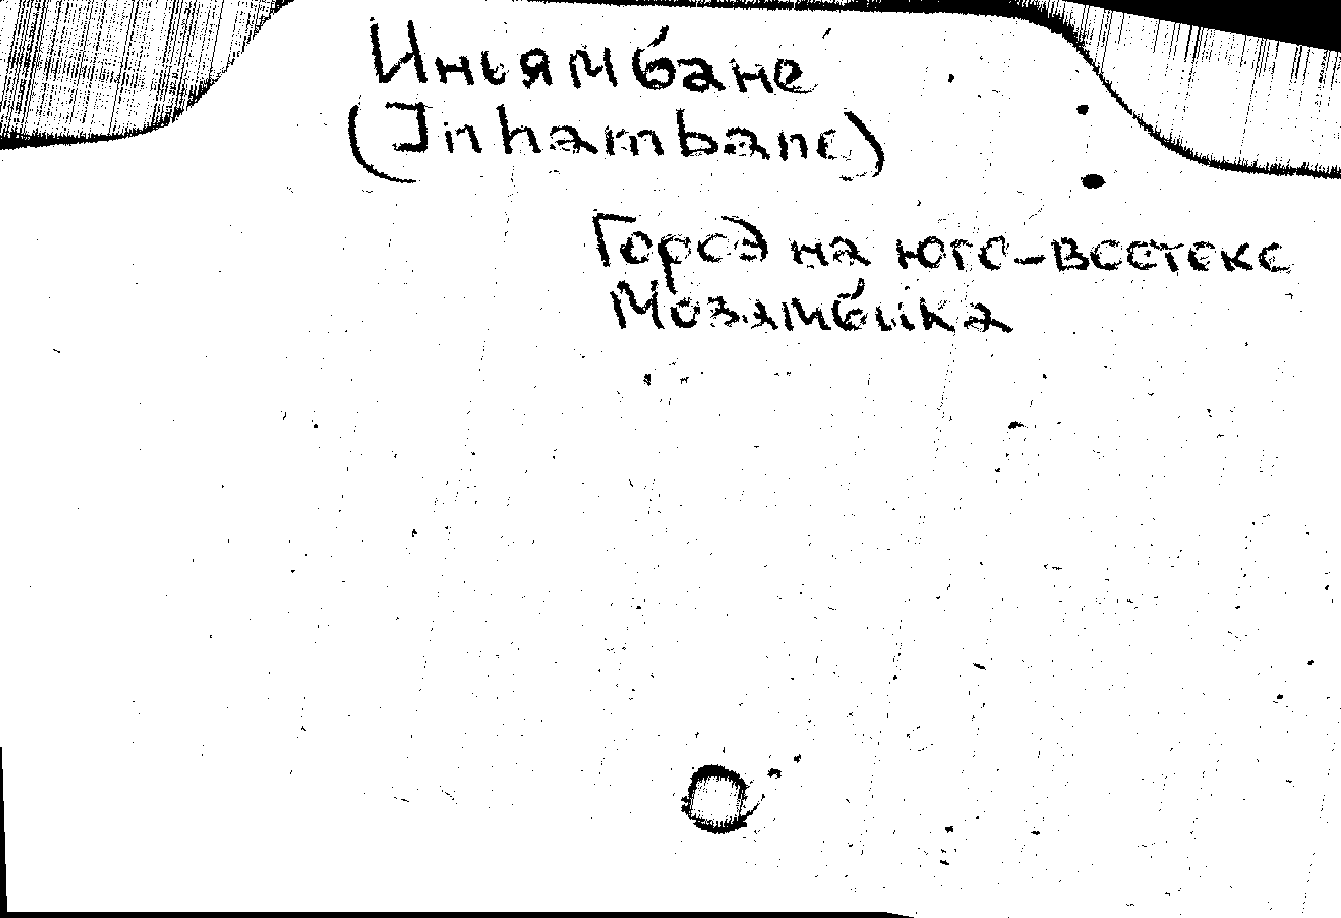 Иньямбане
(Inhambane)
Город на юго-востоке
Мозамбика